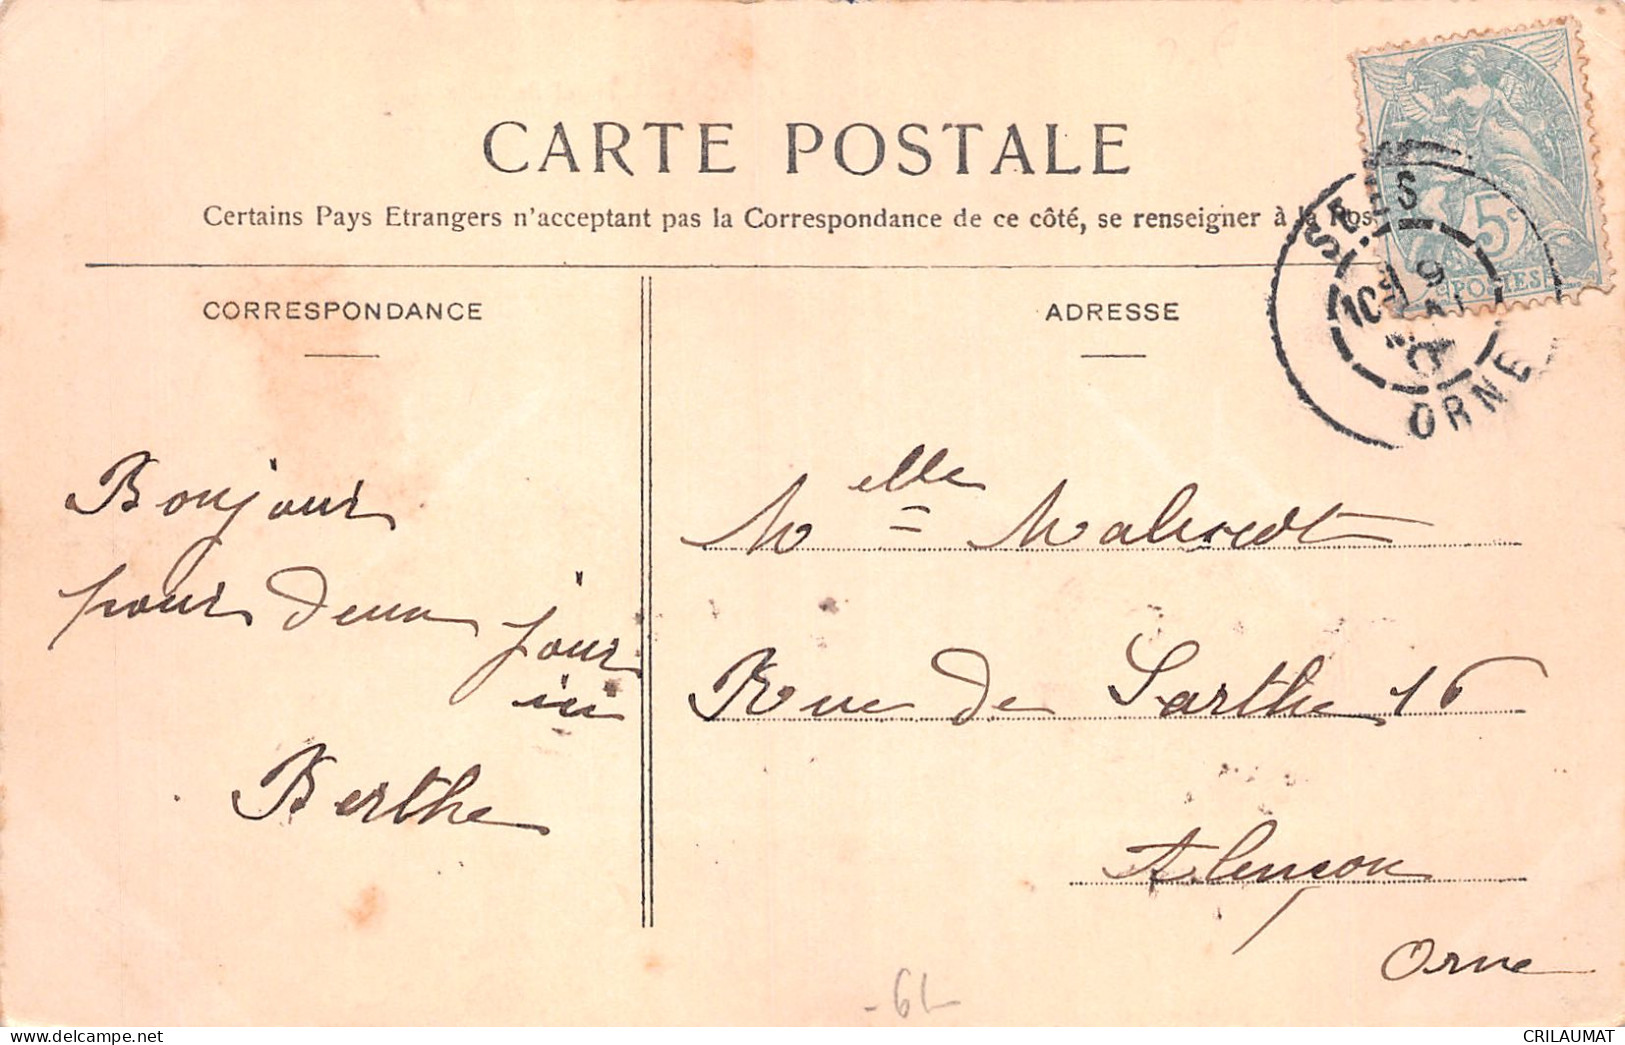 CARTE POSTALE
Certains Pays Etrangers n'acceptant pas la Correspondance de ce côté, se renseigner à la Pos
CORRESPONDANCE
ADRESSE
5c
POSTES
ORNE
Bonjour
pour deux
jour
ici
Berthe
Melle
Rue de Sarthe 16
Alençon
Orne
CRILAUMAT